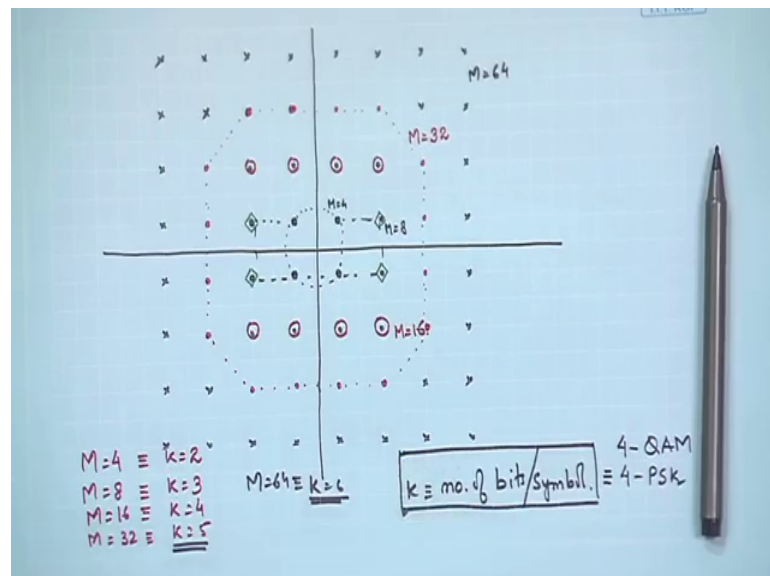 M=64
M=32
M=4
M=8
M=16
M=4 ≡ k=2
M=8 ≡ k=3
M=16 ≡ k=4
M=32 ≡ k=5
M=64 ≡ k=6
k ≡ no. of bits/symbol.
4-QAM
≡ 4-PSK